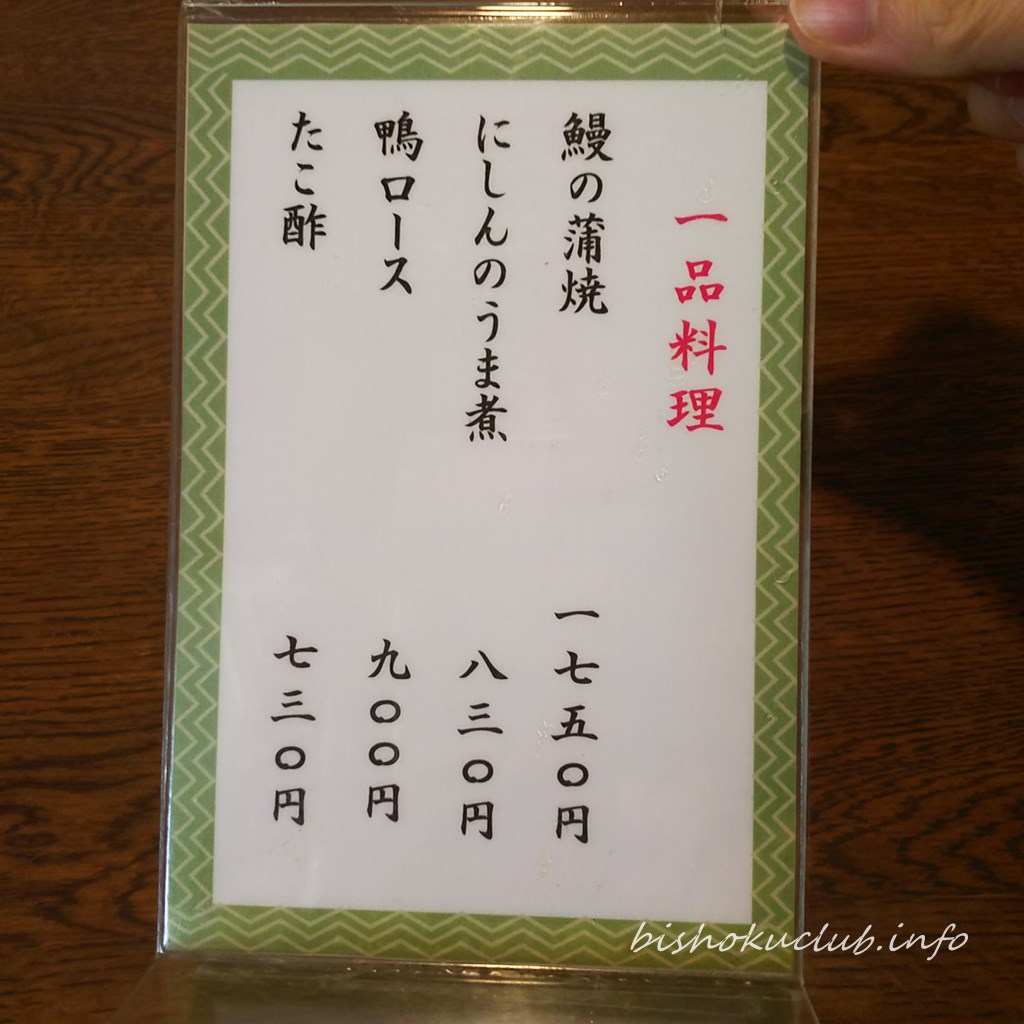 一品料理
鰻の蒲焼 一七五〇円
にしんのうま煮 八三〇円
鴨ロース 九〇〇円
たこ酢 七三〇円
bishokuclub.info